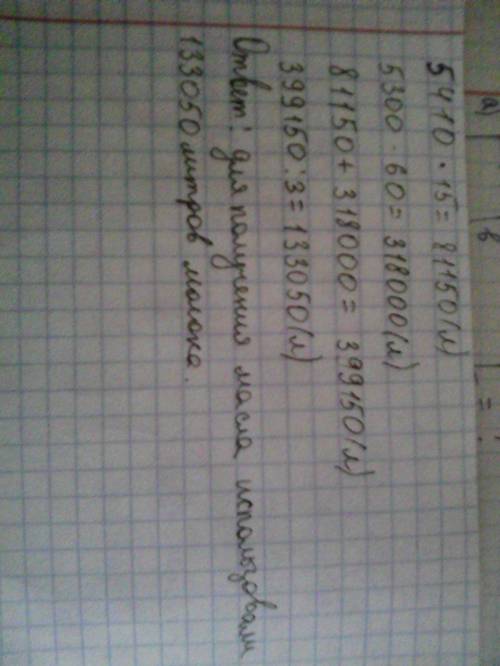 а)
в
=
5410 · 15 = 81150 (л)
5300 · 60 = 318000 (л)
81150 + 318000 = 399150 (л)
399150 : 3 = 133050 (л)
Ответ: для получения масла использовали
133050 литров молока.